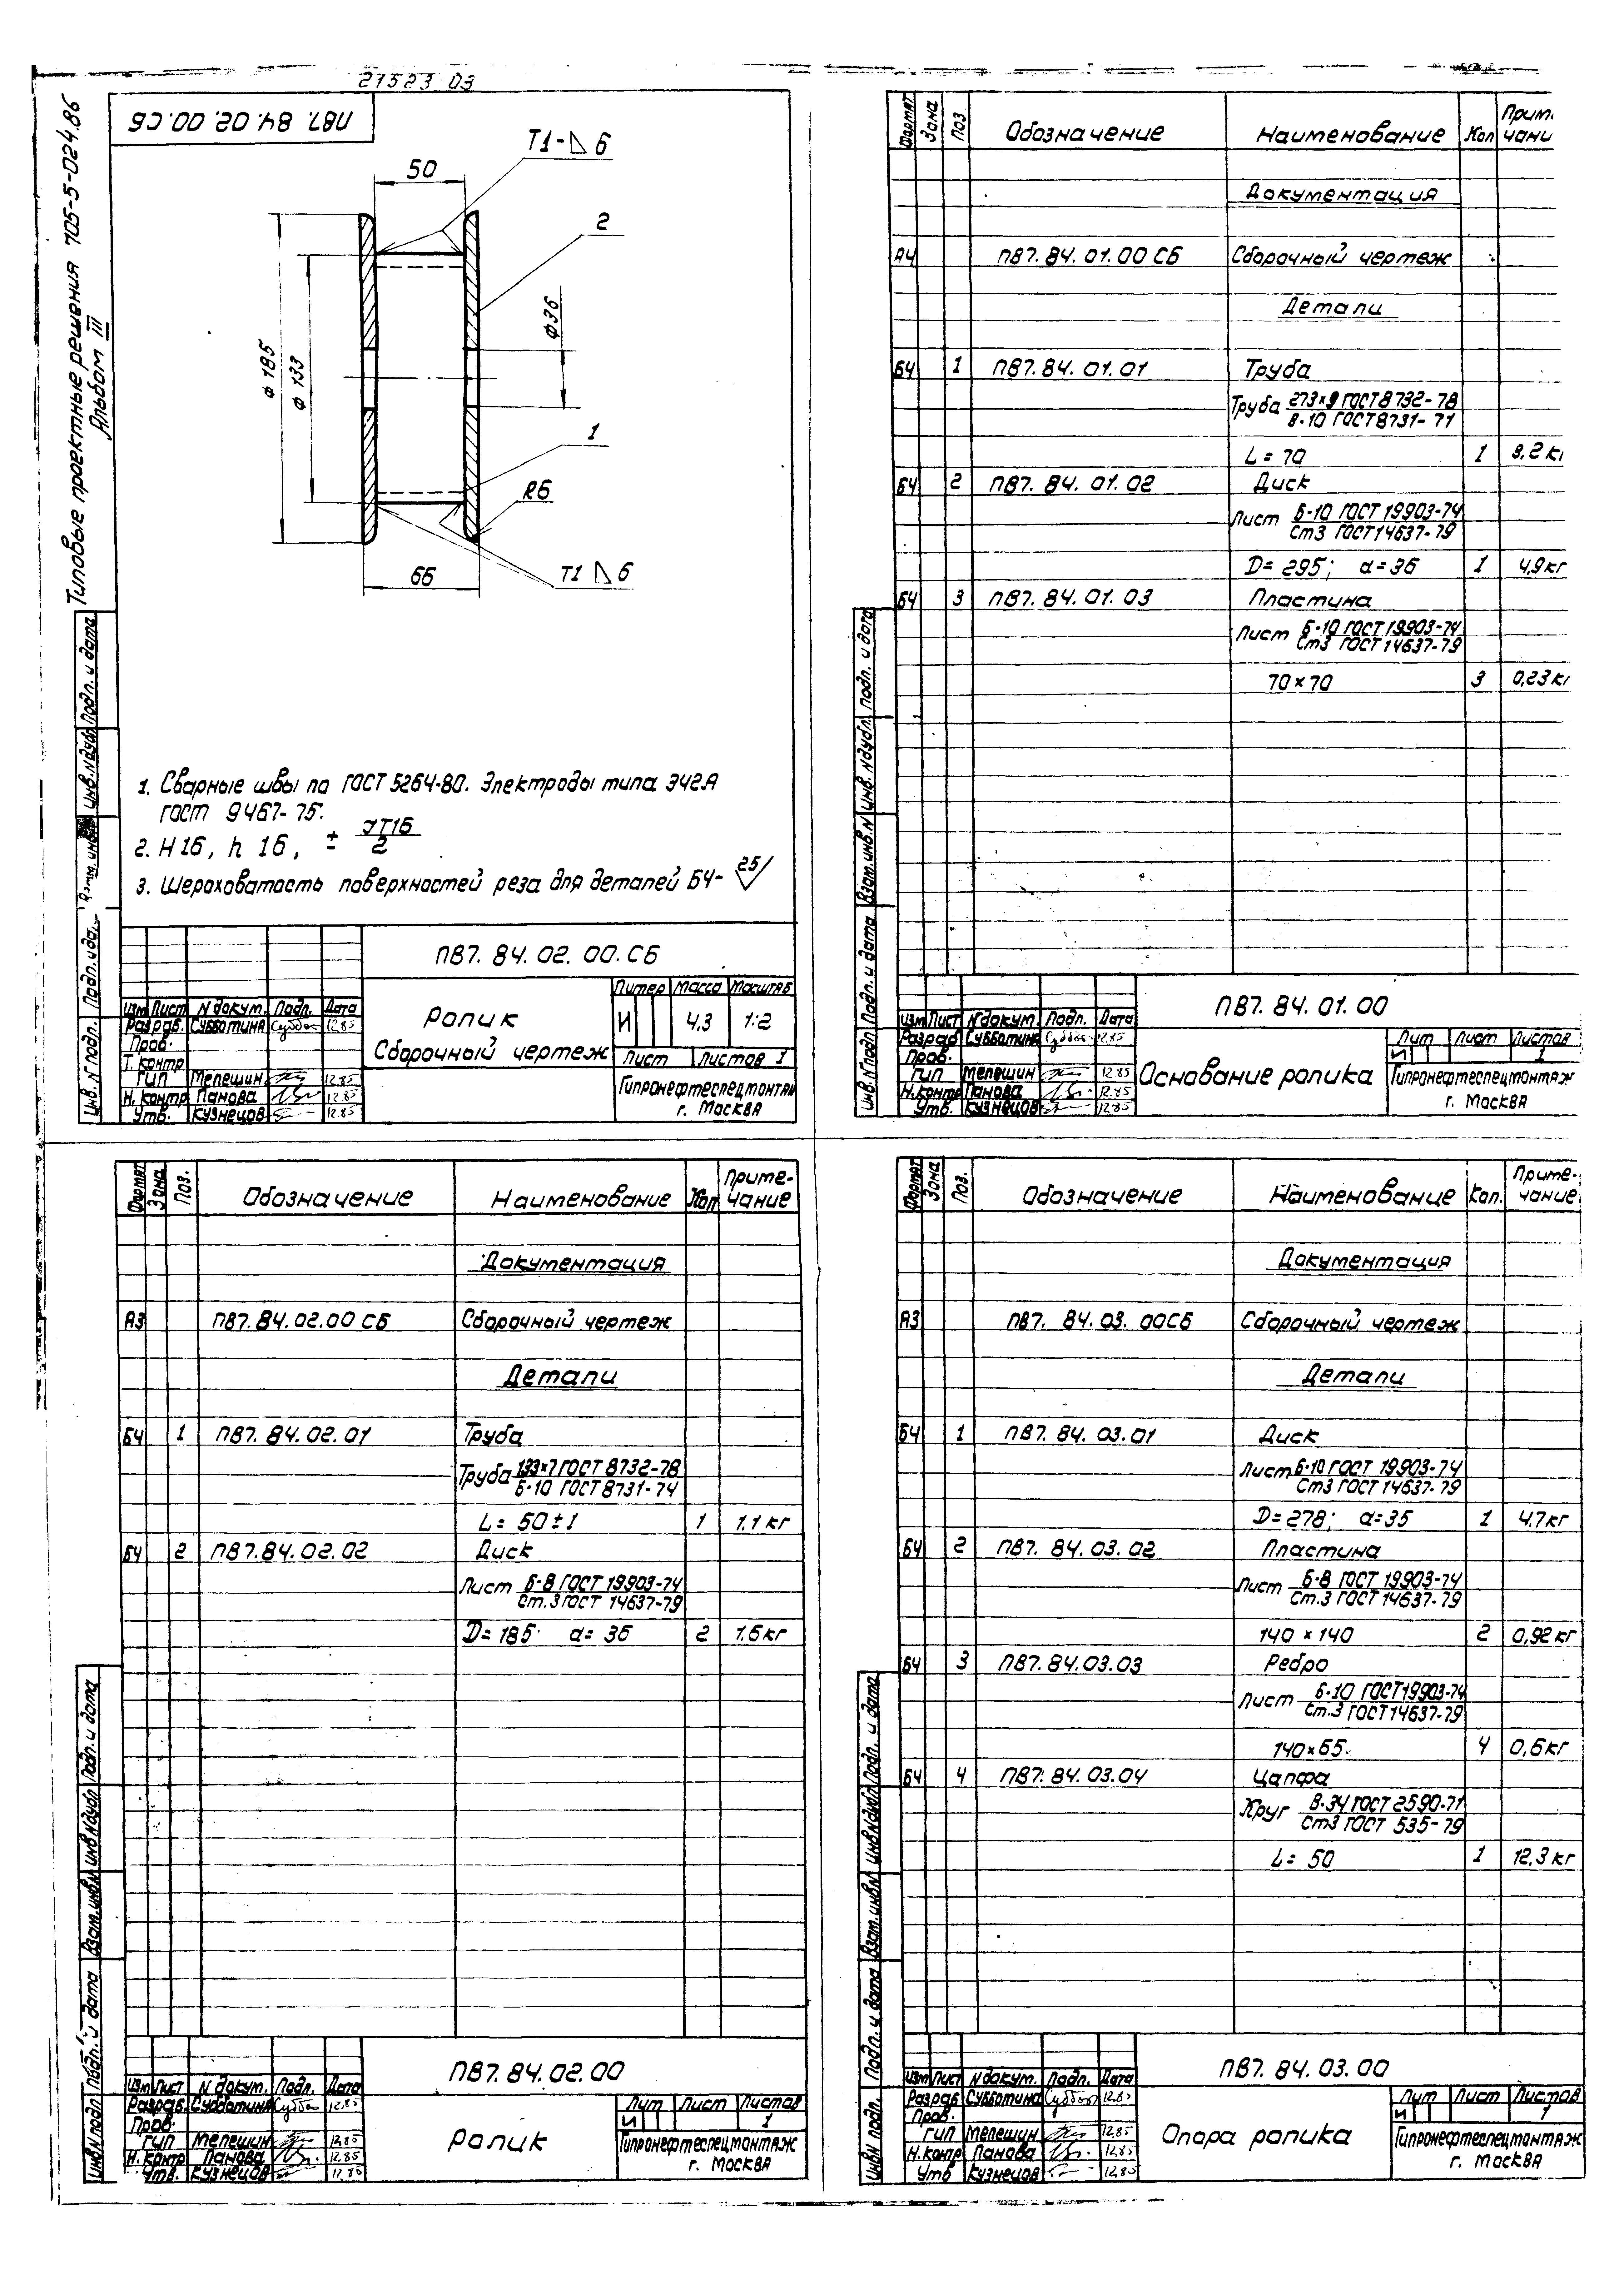 21523-03
Типовые проектные решения 705-5-024.86
Альбом III
П87. 84. 02. 00. СБ
Т1-△ 6
50
2
ф36
ф 185
ф 133
1
R6
66
Т1 △ 6
1. Сварные швы по ГОСТ 5264-80. Электроды типа Э42А
ГОСТ 9467-75.
2. Н16, h 16, ± JT16/2
3. Шероховатость поверхностей реза для деталей БЧ- 25/
Инв. N подл. Подп. и да. Взам. инв. Инв. N дубл. Подп. и дата
П87. 84. 02. 00. СБ
Ролик
Сборочный чертеж
Литер Масса Масштаб
И 4,3 1:2
Лист Листов 1
Гипронефтеспецмонтаж
г. Москва
Изм Лист N докум. Подп. Дата
Разраб. Субботина 12.85
Пров.
Т. контр
ГИП Мелешин 12.85
Н. контр Панова 12.85
Утв. Кузнецов 12.85
Формат Зона Поз Обозначение Наименование Кол Приме-чани
Документация
А4 П87. 84. 01. 00 СБ Сборочный чертеж
Детали
БЧ 1 П87. 84. 01. 01 Труба
Труба 273×9 ГОСТ 8732-78
В-10 ГОСТ 8731-71
L = 70 1 9,2 кг
БЧ 2 П87. 84. 01. 02 Диск
Лист Б-10 ГОСТ 19903-74
Ст3 ГОСТ 14637-79
D= 295; d=36 1 4,9 кг
БЧ 3 П87. 84. 01. 03 Пластина
Лист Б-10 ГОСТ 19903-74
Ст3 ГОСТ 14637-79
70×70 3 0,23 кг
Инв. N подл Подп. и дата Взам. инв. N Инв. N дубл. Подп. и дата
П87. 84. 01. 00
Основание ролика
Лит Лист Листов
И 1
Гипронефтеспецмонтаж
г. Москва
Изм Лист N докум. Подп. Дата
Разраб Субботина 12.85
Пров.
ГИП Мелешин 12.85
Н. контр Панова 12.85
Утв. Кузнецов 12.85
Формат Зона Поз. Обозначение Наименование Кол Приме-чание
Документация
А3 П87. 84. 02. 00 СБ Сборочный чертеж
Детали
БЧ 1 П87. 84. 02. 01 Труба
Труба 133×7 ГОСТ 8732-78
Б-10 ГОСТ 8731-74
L= 50±1 1 1,1 кг
БЧ 2 П87. 84. 02. 02 Диск
Лист Б-8 ГОСТ 19903-74
Ст.3 ГОСТ 14637-79
D= 185 d= 36 2 1,6 кг
Инв N подл Подп. и дата Взам. инв N Инв N дубл Подп. и дата
П87. 84. 02. 00
Ролик
Лит Лист Листов
И 1
Гипронефтеспецмонтаж
г. Москва
Изм Лист N докум. Подп. Дата
Разраб. Субботина 12.85
Пров.
ГИП Мелешин 12.85
Н. контр Панова 12.85
Утв. Кузнецов 12.85
Формат Зона Поз. Обозначение Наименование Кол. Приме-чание
Документация
А3 П87. 84. 03. 00СБ Сборочный чертеж
Детали
БЧ 1 П87. 84. 03. 01 Диск
Лист Б-10 ГОСТ 19903-74
Ст3 ГОСТ 14637-79
D=278; d=35 1 4,7 кг
БЧ 2 П87. 84. 03. 02 Пластина
Лист Б-8 ГОСТ 19903-74
Ст.3 ГОСТ 14637-79
140 × 140 2 0,92 кг
БЧ 3 П87. 84. 03. 03 Ребро
Лист Б-10 ГОСТ 19903-74
Ст.3 ГОСТ 14637-79
140×65. 4 0,6 кг
БЧ 4 П87. 84. 03. 04 Цапфа
Круг В-34 ГОСТ 2590-71
Ст3 ГОСТ 535-79
L= 50 1 12,3 кг
Инв N подл. Подп. и дата Взам. инв N Инв N дубл Подп. и дата
П87. 84. 03. 00
Опора ролика
Лит Лист Листов
И 1
Гипронефтеспецмонтаж
г. Москва
Изм Лист N докум. Подп. Дата
Разраб Субботина 12.85
Пров.
ГИП Мелешин 12.85
Н. контр Панова 12.85
Утв Кузнецов 12.85